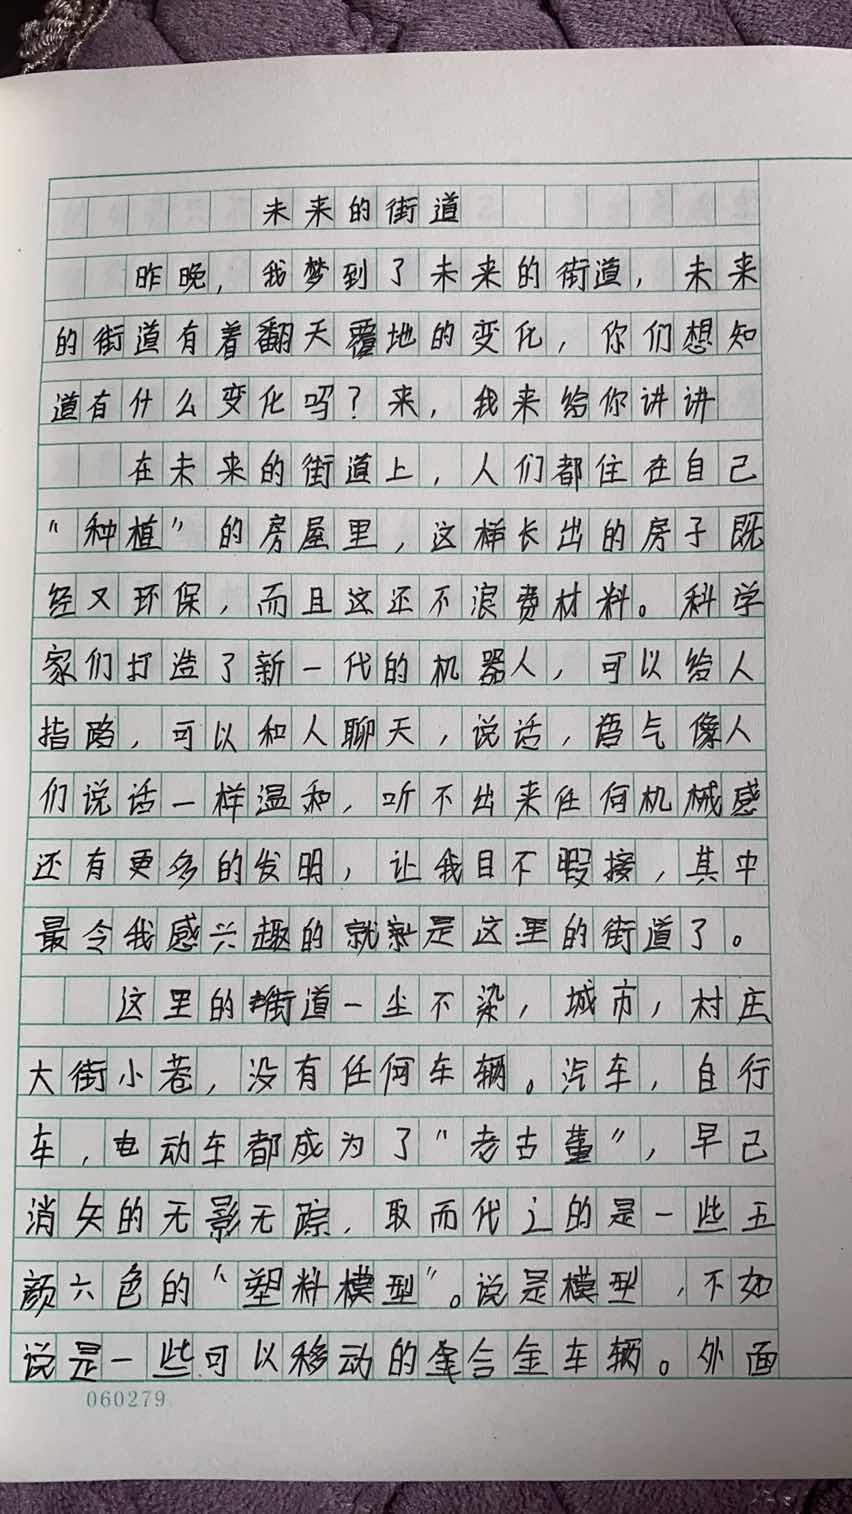 未来的街道
昨晚，我梦到了未来的街道，未来
的街道有着翻天覆地的变化，你们想知
道有什么变化吗？来，我来给你讲讲
在未来的街道上，人们都住在自己
“种植”的房屋里，这样长出的房子既
经又环保，而且这还不浪费材料。科学
家们打造了新一代的机器人，可以给人
指路，可以和人聊天，说话，语气像人
们说话一样温和，听不出来任何机械感
还有更多的发明，让我目不暇接，其中
最令我感兴趣的就是这里的街道了。
这里的街道一尘不染，城市，村庄
大街小巷，没有任何车辆。汽车，自行
车，电动车都成为了“老古董”，早己
消失的无影无踪，取而代之的是一些五
颜六色的“塑料模型”。说是模型，不如
说是一些可以移动的合金车辆。外面
060279